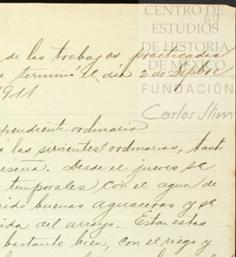 CENTRO DE
ESTUDIOS
DE HISTORIA
DE MÉXICO
FUNDACIÓN
Carlos Slim
de los trabajos practicados
terminó el día 2 de Sepbre
1911.
pendiente ordinaria
las sirvientes ordinarias, tant
reseña. Desde el jueves se
temporales) con el agua de
ido buenos aguaceros y se
ida del arroyo. Estas estas
bastante bien, con el riego y